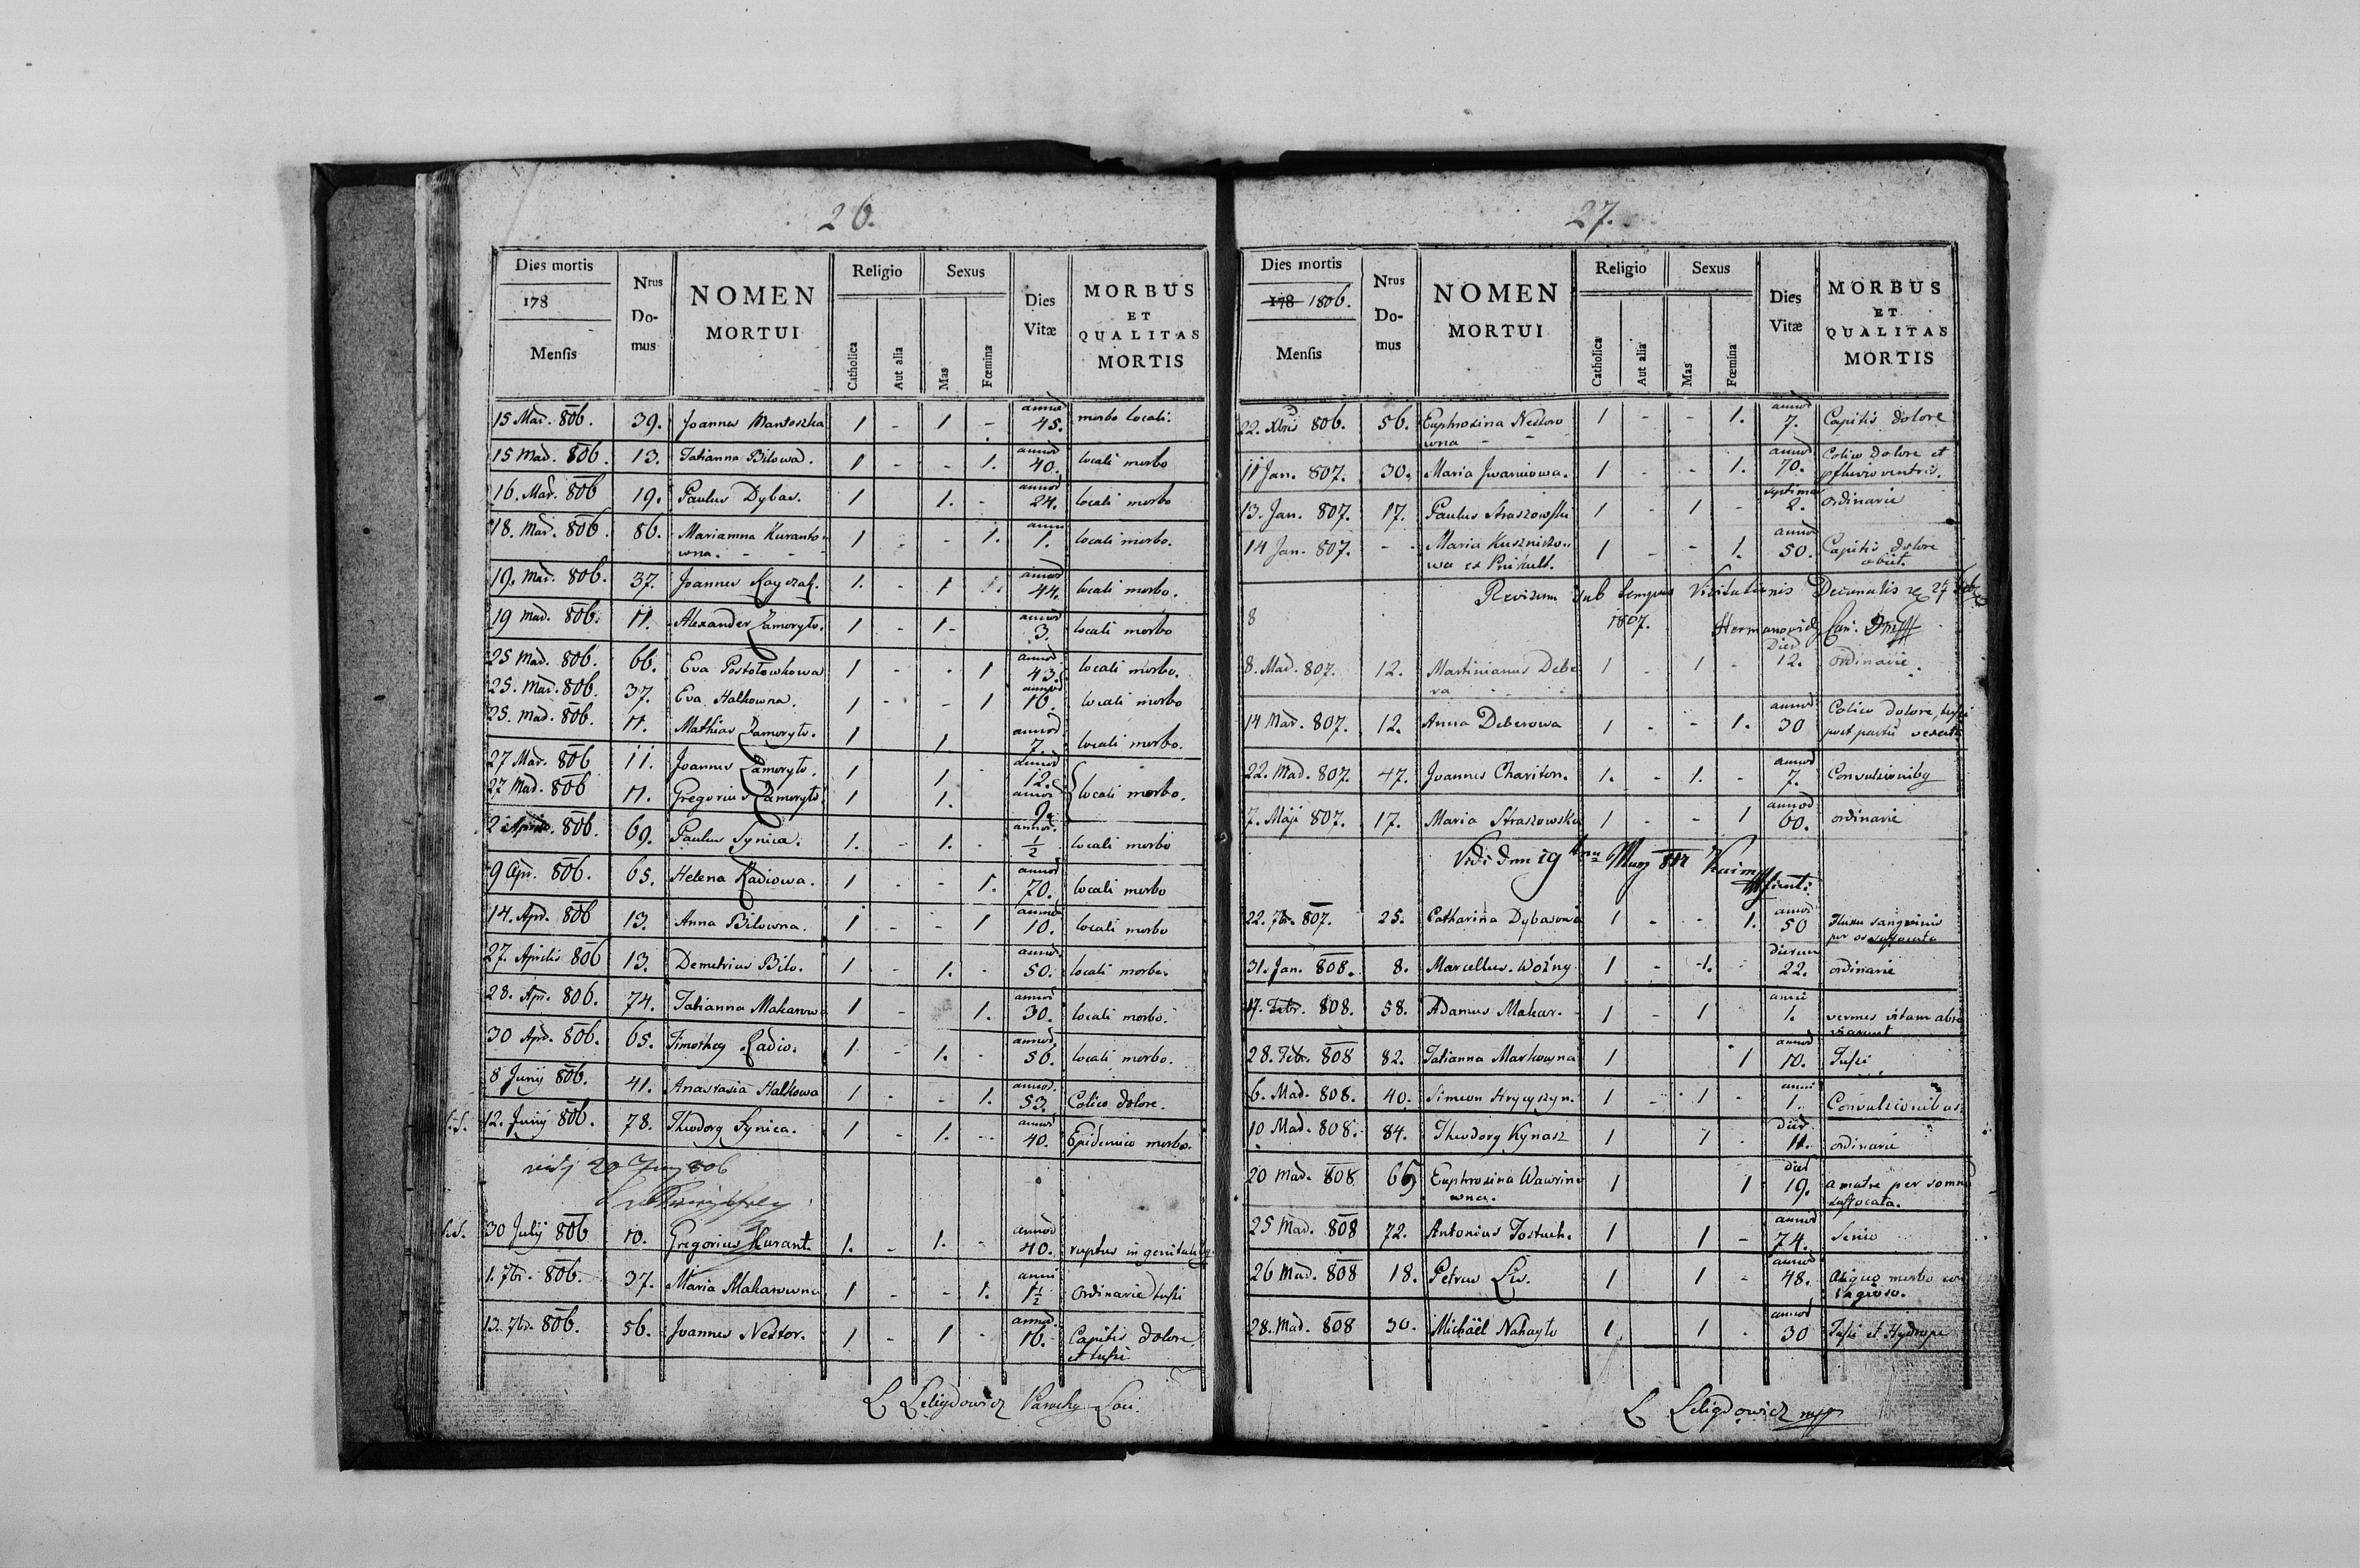 26.
Dies mortis
178
Mensis
Nrus Domus
NOMEN MORTUI
Religio
Catholica
Aut alia
Sexus
Mas
Fœmina
Dies Vitæ
MORBUS ET QUALITAS MORTIS
15 Mar. 806. 39. Joannes Mantoszka 1 - 1 - annor 45. morbo locali.
15 Mar. 806. 13. Tatianna Bilowa. 1 - - 1. annor 40. locali morbo
16. Mar. 806 19. Paulus Dybas. 1 1. - annor 24. locali morbo
18. Mar. 806. 86. Marianna Kuranto 1 - - 1. anni 1. locali morbo.
wna. - -
19. Mar. 806. 37. Joannes 1. - 1 annor 44. locali morbo.
19 Mar. 806. 11. Alexander Zamoryto. 1 - 1- annor 3. locali morbo
25 Mar. 806. 66. Eva Postołowkowa 1 - - 1 annor 43. locali morbo.
25. Mar. 806. 37. Eva Halkowna. 1 - - 1 annor 16. locali morbo
25. Mar. 806. 11. Mathias Zamoryto. 1 1 annor 7. locali morbo.
27 Mar. 806 11. Joannes Zamoryto. 1 1 - annor 12.
27 Mar. 806 11. Gregorius Zamoryto. 1 1. annor 9. locali morbo.
2 Aprilis. 806. 69. Paulus Synica. 1. - 1. - annor. 1/2 locali morbo
9 Apr. 806. 65. Helena Radiowa. 1 - - 1. annor 70. locali morbo
14. Apr. 806 13. Anna Bilowna. 1 - - 1 annor 10. locali morbo
27. Aprilis 806 13. Demetrius Bilo. 1 - 1. - annor 50. locali morbo.
28. Apr. 806. 74. Tatianna Makarowa 1 - 1. annor 30. locali morbo.
30 Apr. 806. 65. Timothey Radio. 1 - 1. - annor. 56. locali morbo.
8 Junij 806. 41. Anastasia Halkowa 1 - - 1. annor. 53. Colico dolore.
12. Junij 806. 78. Theodorg Synica. 1 - 1. - annor 40. Epidemico morbo.
vidj 20 Juny 806
30 Julij 806 10. Gregorius Kurant. 1. - 1. - annor 40. ruptus in genitalibg.
1. 7br. 806. 37. Maria Makarowna 1 - - 1. anni 1 1/2 Ordinarie tussi
13. 7br. 806. 56. Joannes Nestor. 1 - 1 - annor. 16. Capitis dolore
et tussi
L Leligdowicz Parochg Loci.
27.
Dies mortis
178 1806.
Mensis
Nrus Domus
NOMEN MORTUI
Religio
Catholica
Aut alia
Sexus
Mas
Fœmina
Dies Vitæ
MORBUS ET QUALITAS MORTIS
22. Xbris 806. 56. Euphrosina Nestoro 1 - - 1. annor 7. Capitis dolore
wna - -
11 Jan. 807. 30. Maria Jwaniowa. 1 - - 1. annor 70. Colico dolore et
pfluvio ventris.
13. Jan. 807. 17. Paulus Straszowski 1 - 1 - septima 2. ordinarie
14 Jan. 807. - - Maria Kusznirzo 1 - - 1. annor 50. Capitis dolore
wa ex obiit.
Revisum sub tempus Visitationis Decanalis 27
8 1807. Hermanowicz Can.
8. Mar. 807. 12. Martinianus Debe 1 - 1 - Dier 12. ordinarie.
ra
14 Mar. 807. 12. Anna Deberowa 1 - - 1. annor 30 Colico dolore, tussi
post partu vexata
22. Mar. 807. 47. Joannes Chariton. 1. - 1. - annor 7. Convulsionibg
7. Maji 807. 17. Maria Straszowska 1 - - 1 annor 60. ordinarie
Vidi Dnn 19
22. 7br. 807. 25. Catharina Dybasowa 1 - - 1. annor 50 fluxu sanguinis
per os suffocata
31. Jan. 808. 8. Marcellus Woźny 1 - 1. - dierum 22. ordinarie
17. Febr. 808. 58. Adamus Makar. 1 - 1 anni 1. vermes vitam abre
viarunt
28. Febr. 808 82. Tatianna Markowna 1 1 annor 10. Tussi.
6. Mar. 808. 40. Simeon Hrycyszyn. 1 - 1 - anni 1. Convulsionibus
10 Mar. 808. 84. Theodorg Kynasz 1 1 - dier 11. ordinarie
20 Mar. 808 65 Euphrosina Wawrino 1 1 dier 19. a matre per somnu
wna. suffocata.
25 Mar. 808 72. Antonius Tostuch. 1 1 - annor 74. Senio
26 Mar. 808 18. Petrus Liw. 1 1 - annor 48. morbo con
tagioso.
28. Mar. 808 30. Michaël Nahayto 1 1 - annor 30 Tussi et Hydrope
L Leligdowicz mpp